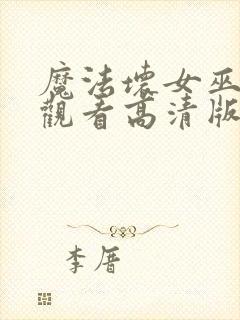 魔法壞女巫
觀看高清版
李厝